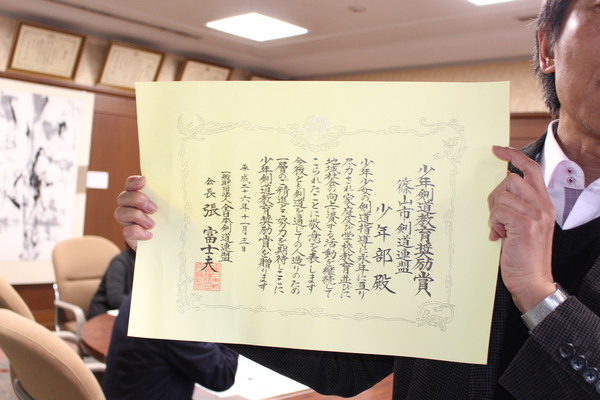 少年剣道教育奨励賞
篠山市剣道連盟
少年部殿
少年少女の剣道指導に永年に亘り
尽力され家庭及び学校教育並びに
地域社会の向上に資する活動を継続して
こられたことに敬意を表します
今後とも剣道を通じての人造りのため
一層のご精進とご努力を期待しここに
少年剣道教育奨励賞を贈ります
平成二十六年十一月三日
一般財団法人全日本剣道連盟
会長 張富士夫